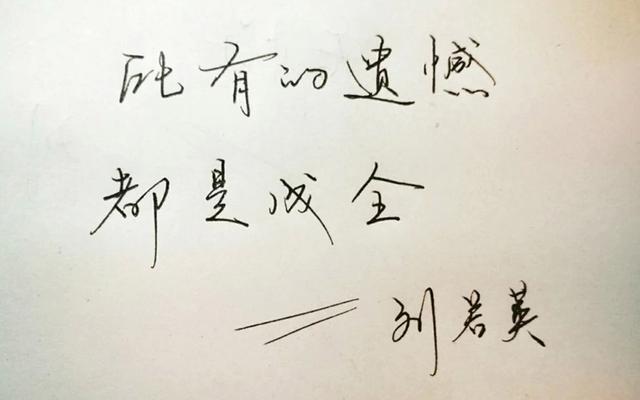 所有的遗憾
都是成全
——刘若英